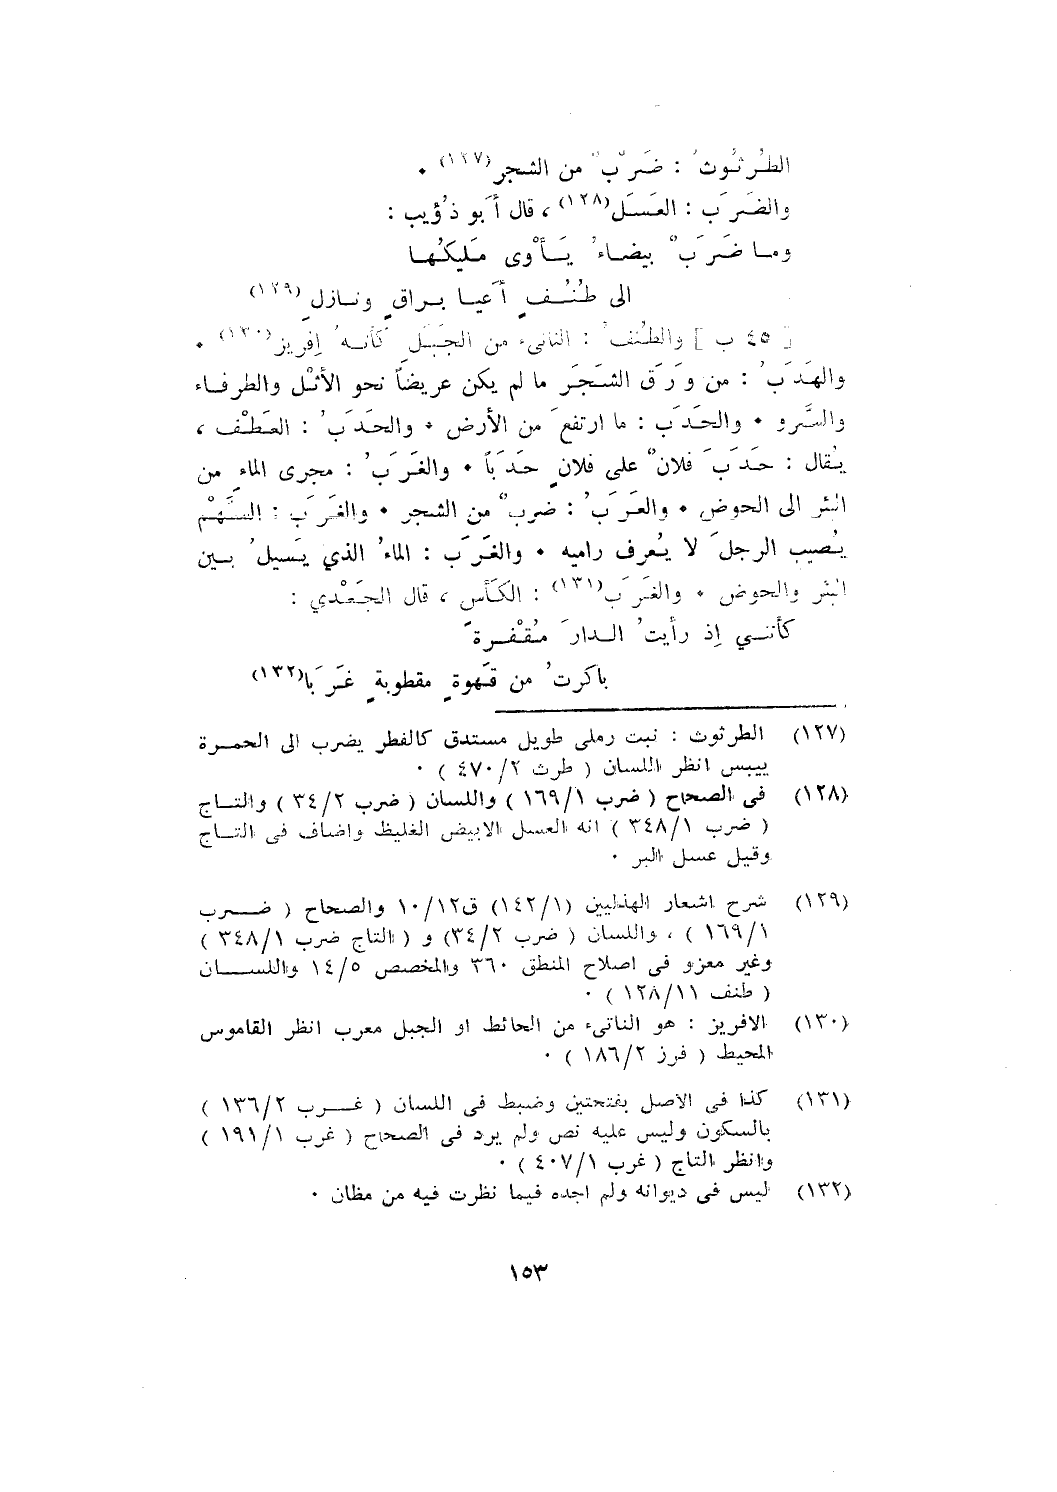 الطُرثُوثُ : ضَرْبٌ من الشجرِ(١٢٧) ٠
والضَرَب : العَسَل(١٢٨) ، قال أَبو ذُؤيب :
ومـا ضَرَبٌ بيضـاءُ يَـأْوى مَليكُهـا
الى طُنُـفٍ أَعيـا بـراقٍ ونـازلِ(١٢٩)
[ ٤٥ ب ] والطُنُفُ : الناتىء من الجَبَلِ كأنـهُ إفريز(١٣٠) ٠
والهَدَبُ : من وَرَق الشَجَر ما لم يكن عريضاً نحو الأَثْل والطرفـاء
والسَّرو ٠ والحَدَب : ما ارتفعَ من الأرض ٠ والحَدَبُ : العَطْف ،
يُقال : حَدَبَ فلانٌ على فلانٍ حَدَباً ٠ والغَرَبُ : مجرى الماءِ من
البئر الى الحوض ٠ والغَرَبُ : ضربٌ من الشجر ٠ والغَرَب : السَّهْم
يُصيب الرجلَ لا يُعرف راميه ٠ والغَرَب : الماءُ الذي يَسيلُ بـين
البئر والحوض ٠ والغَرَب(١٣١) : الكَأْس ، قال الجَعْدي :
كأننـي إذ رأيتُ الـدارَ مُقْفـرةً
باكرتُ من قَهوةٍ مقطوبةٍ غَرَبا(١٣٢)
(١٢٧) الطرثوث : نبت رملى طويل مستدق كالفطر يضرب الى الحمـرة
ييبس انظر اللسان ( طرث ٤٧٠/٢ ) ٠
(١٢٨) فى الصحاح ( ضرب ١٦٩/١ ) واللسان ( ضرب ٣٤/٢ ) والتـاج
( ضرب ٣٤٨/١ ) انه العسل الابيض الغليظ واضاف فى التـاج
وقيل عسل البر ٠
(١٢٩) شرح اشعار الهذليين (١٤٢/١) ق١٠/١٢ والصحاح ( ضـرب
١٦٩/١ ) ، واللسان ( ضرب ٣٤/٢) و ( التاج ضرب ٣٤٨/١ )
وغير معزو فى اصلاح المنطق ٣٦٠ والمخصص ١٤/٥ واللسـان
( طنف ١٢٨/١١ ) ٠
(١٣٠) الافريز : هو الناتىء من الحائط او الجبل معرب انظر القاموس
المحيط ( فرز ١٨٦/٢ ) ٠
(١٣١) كذا فى الاصل بفتحتين وضبط فى اللسان ( غـرب ١٣٦/٢ )
بالسكون وليس عليه نص ولم يرد فى الصحاح ( غرب ١٩١/١ )
وانظر التاج ( غرب ٤٠٧/١ ) ٠
(١٣٢) ليس فى ديوانه ولم اجده فيما نظرت فيه من مظان ٠
١٥٣